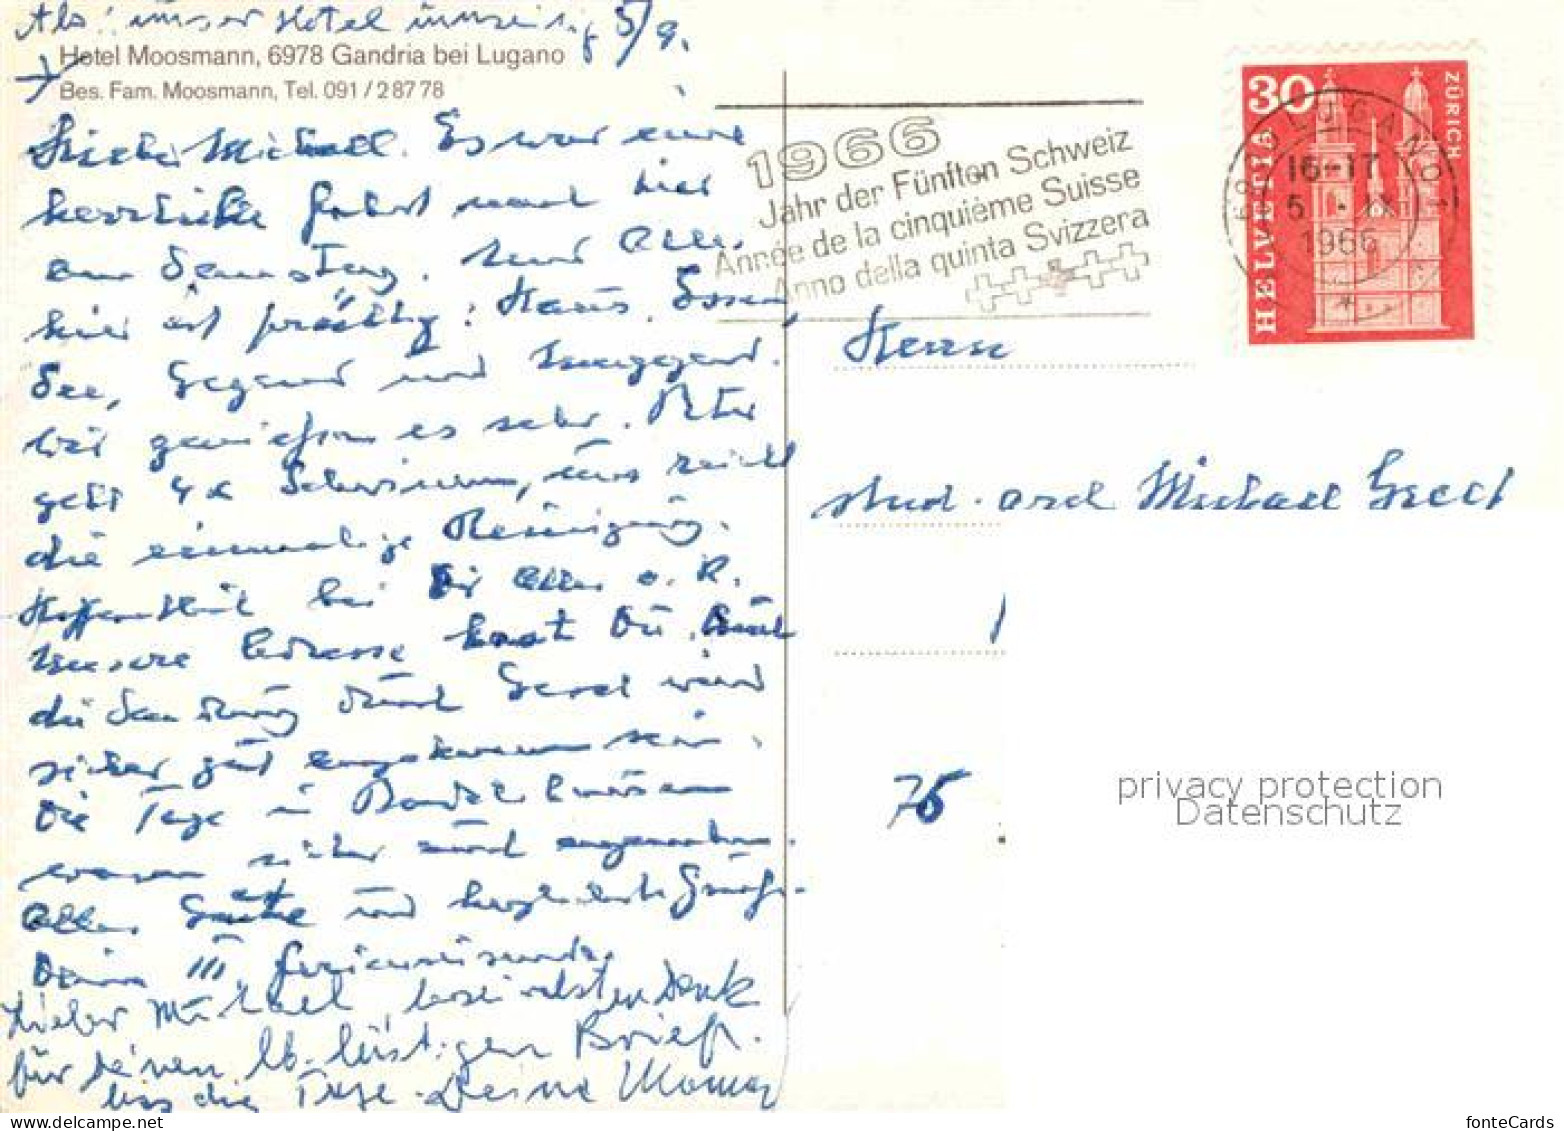 Hotel Moosmann, 6978 Gandria bei Lugano
Bes. Fam. Moosmann, Tel. 091 / 2 87 78
5/9.
Lieber Michael. Es war eine
herrliche Fahrt nach hier
am Samstag. Und Alles
hier ist prächtig: Haus, Essen,
See, Gegend und Umgegend.
Wir genießen es sehr. Peter
geht 4x Schwimmen, uns reicht
die einmalige Reinigung.
Hoffentlich bei Dir Alles o. K.
Unsere Adresse hast Du. Auch
die Sendung durch Gerd wird
sicher gut angekommen sein.
Die Tage in
waren sicher auch angenehm.
Alles Gute und herzlichste Grüße
Deine III Ferienreisende
Lieber Michael, herzlichsten Dank
für deinen lb. lustigen Brief.
Deine Mama
1966
Jahr der Fünften Schweiz
Année de la cinquième Suisse
Anno della quinta Svizzera
30
ZÜRICH
HELVETIA
LUGANO 1
16-17
5.-IX
1966
Herrn
stud. arch Michael
75
privacy protection
Datenschutz
fonteCards